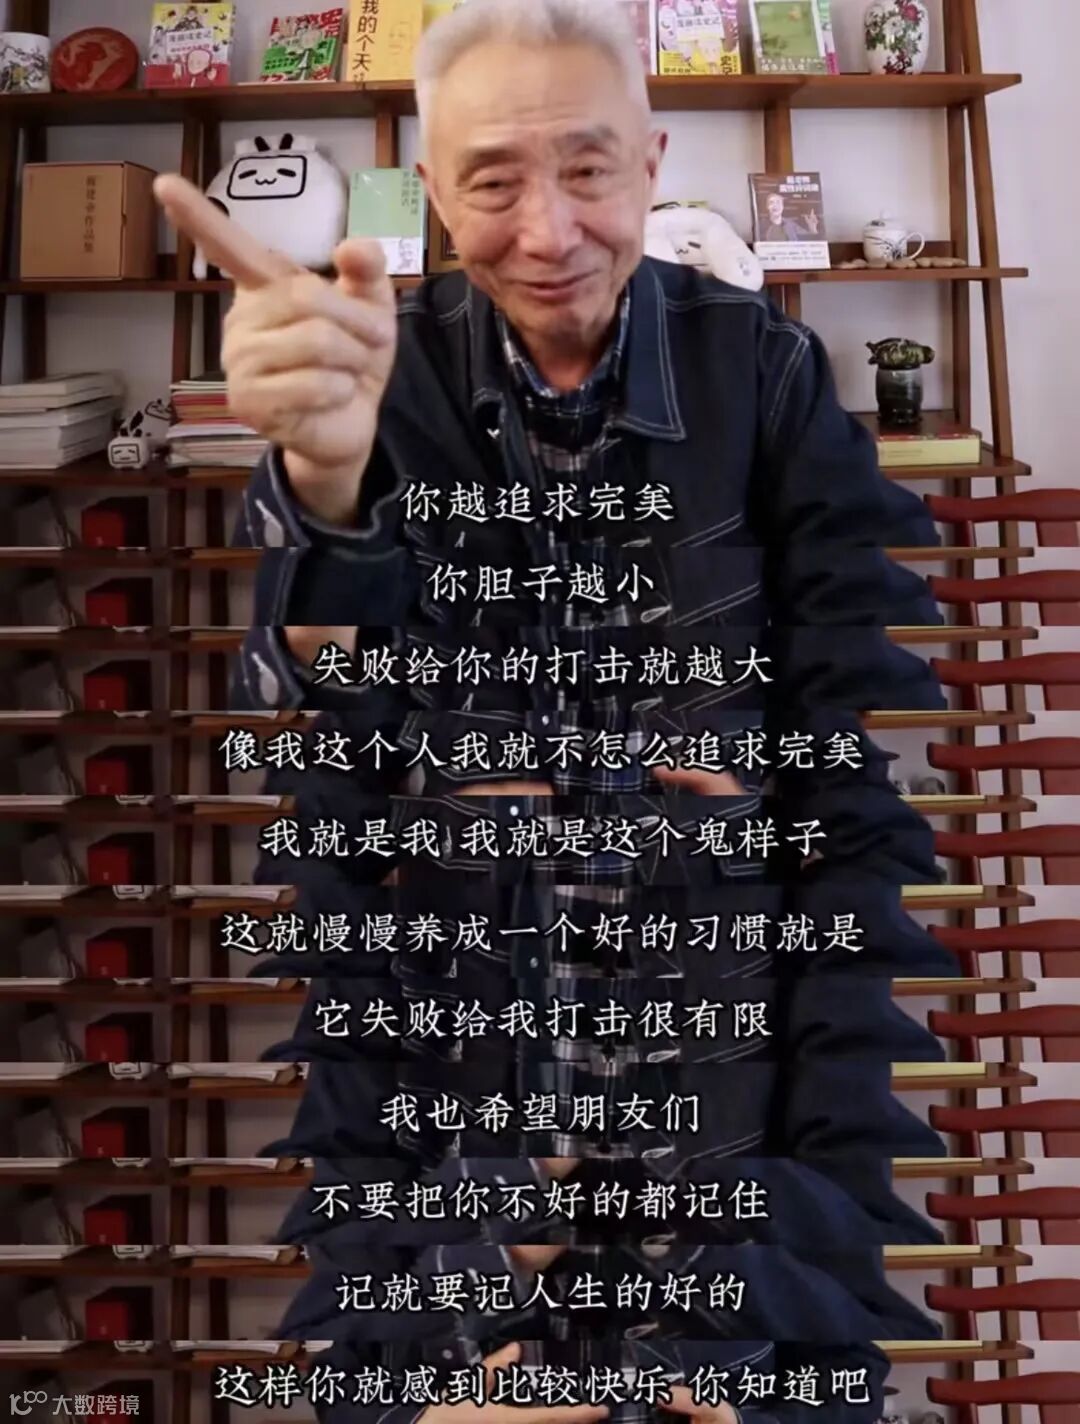 我的个天
你越追求完美
你胆子越小
失败给你的打击就越大
像我这个人我就不怎么追求完美
我就是我 我就是这个鬼样子
这就慢慢养成一个好的习惯就是
它失败给我打击很有限
我也希望朋友们
不要把你不好的都记住
记就要记人生的好的
这样你就感到比较快乐 你知道吧
大数跨境